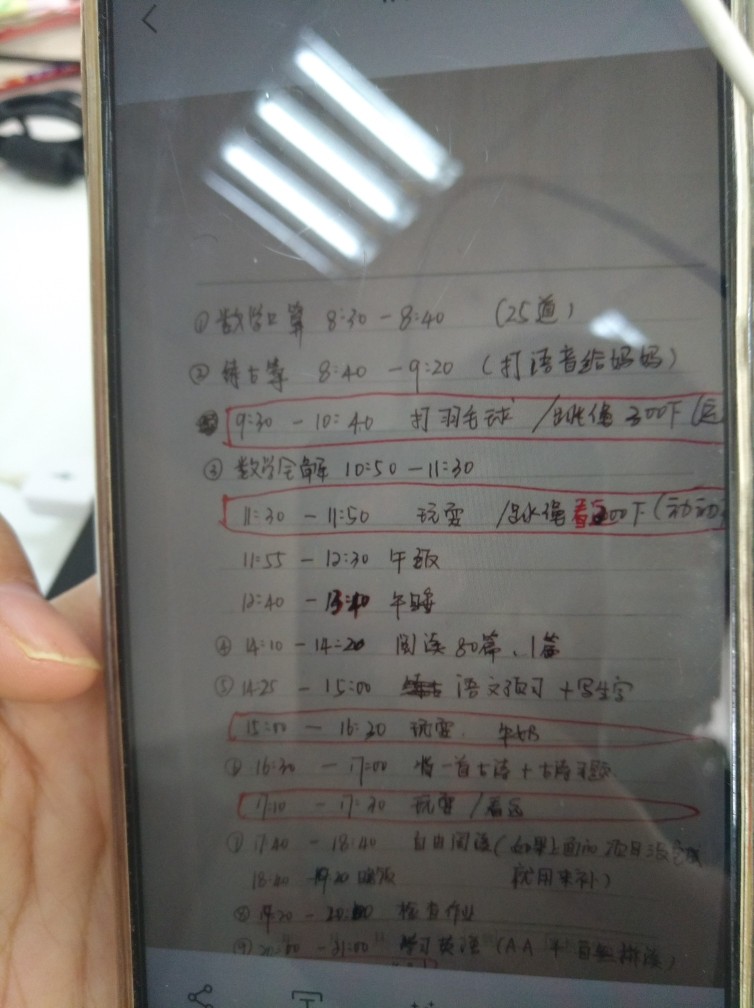 ① 数学口算 8:30 - 8:40 (25道)
② 练古筝 8:40 - 9:20 (打语音给妈妈)
9:30 - 10:40 打羽毛球 /跳绳 300下
③ 数学全解 10:50 - 11:30
11:30 - 11:50 玩耍 /跳绳 00下(动动
11:55 - 12:30 午饭
12:40 - 13:40 午睡
④ 14:10 - 14:20 阅读80篇、1篇
⑤ 14:25 - 15:00 语文预习 + 写生字
15:00 - 16:30 玩耍、
16:30 - 17:00 背一首古诗 + 古诗习题
17:10 - 17:30 玩耍 /看
⑦ 17:40 - 18:40 自由阅读(如果上面的项目没完成
就用来补)
18:40 晚饭
⑧ 检查作业
⑨ - 21:00 学习英语 (AA + 自然拼读)